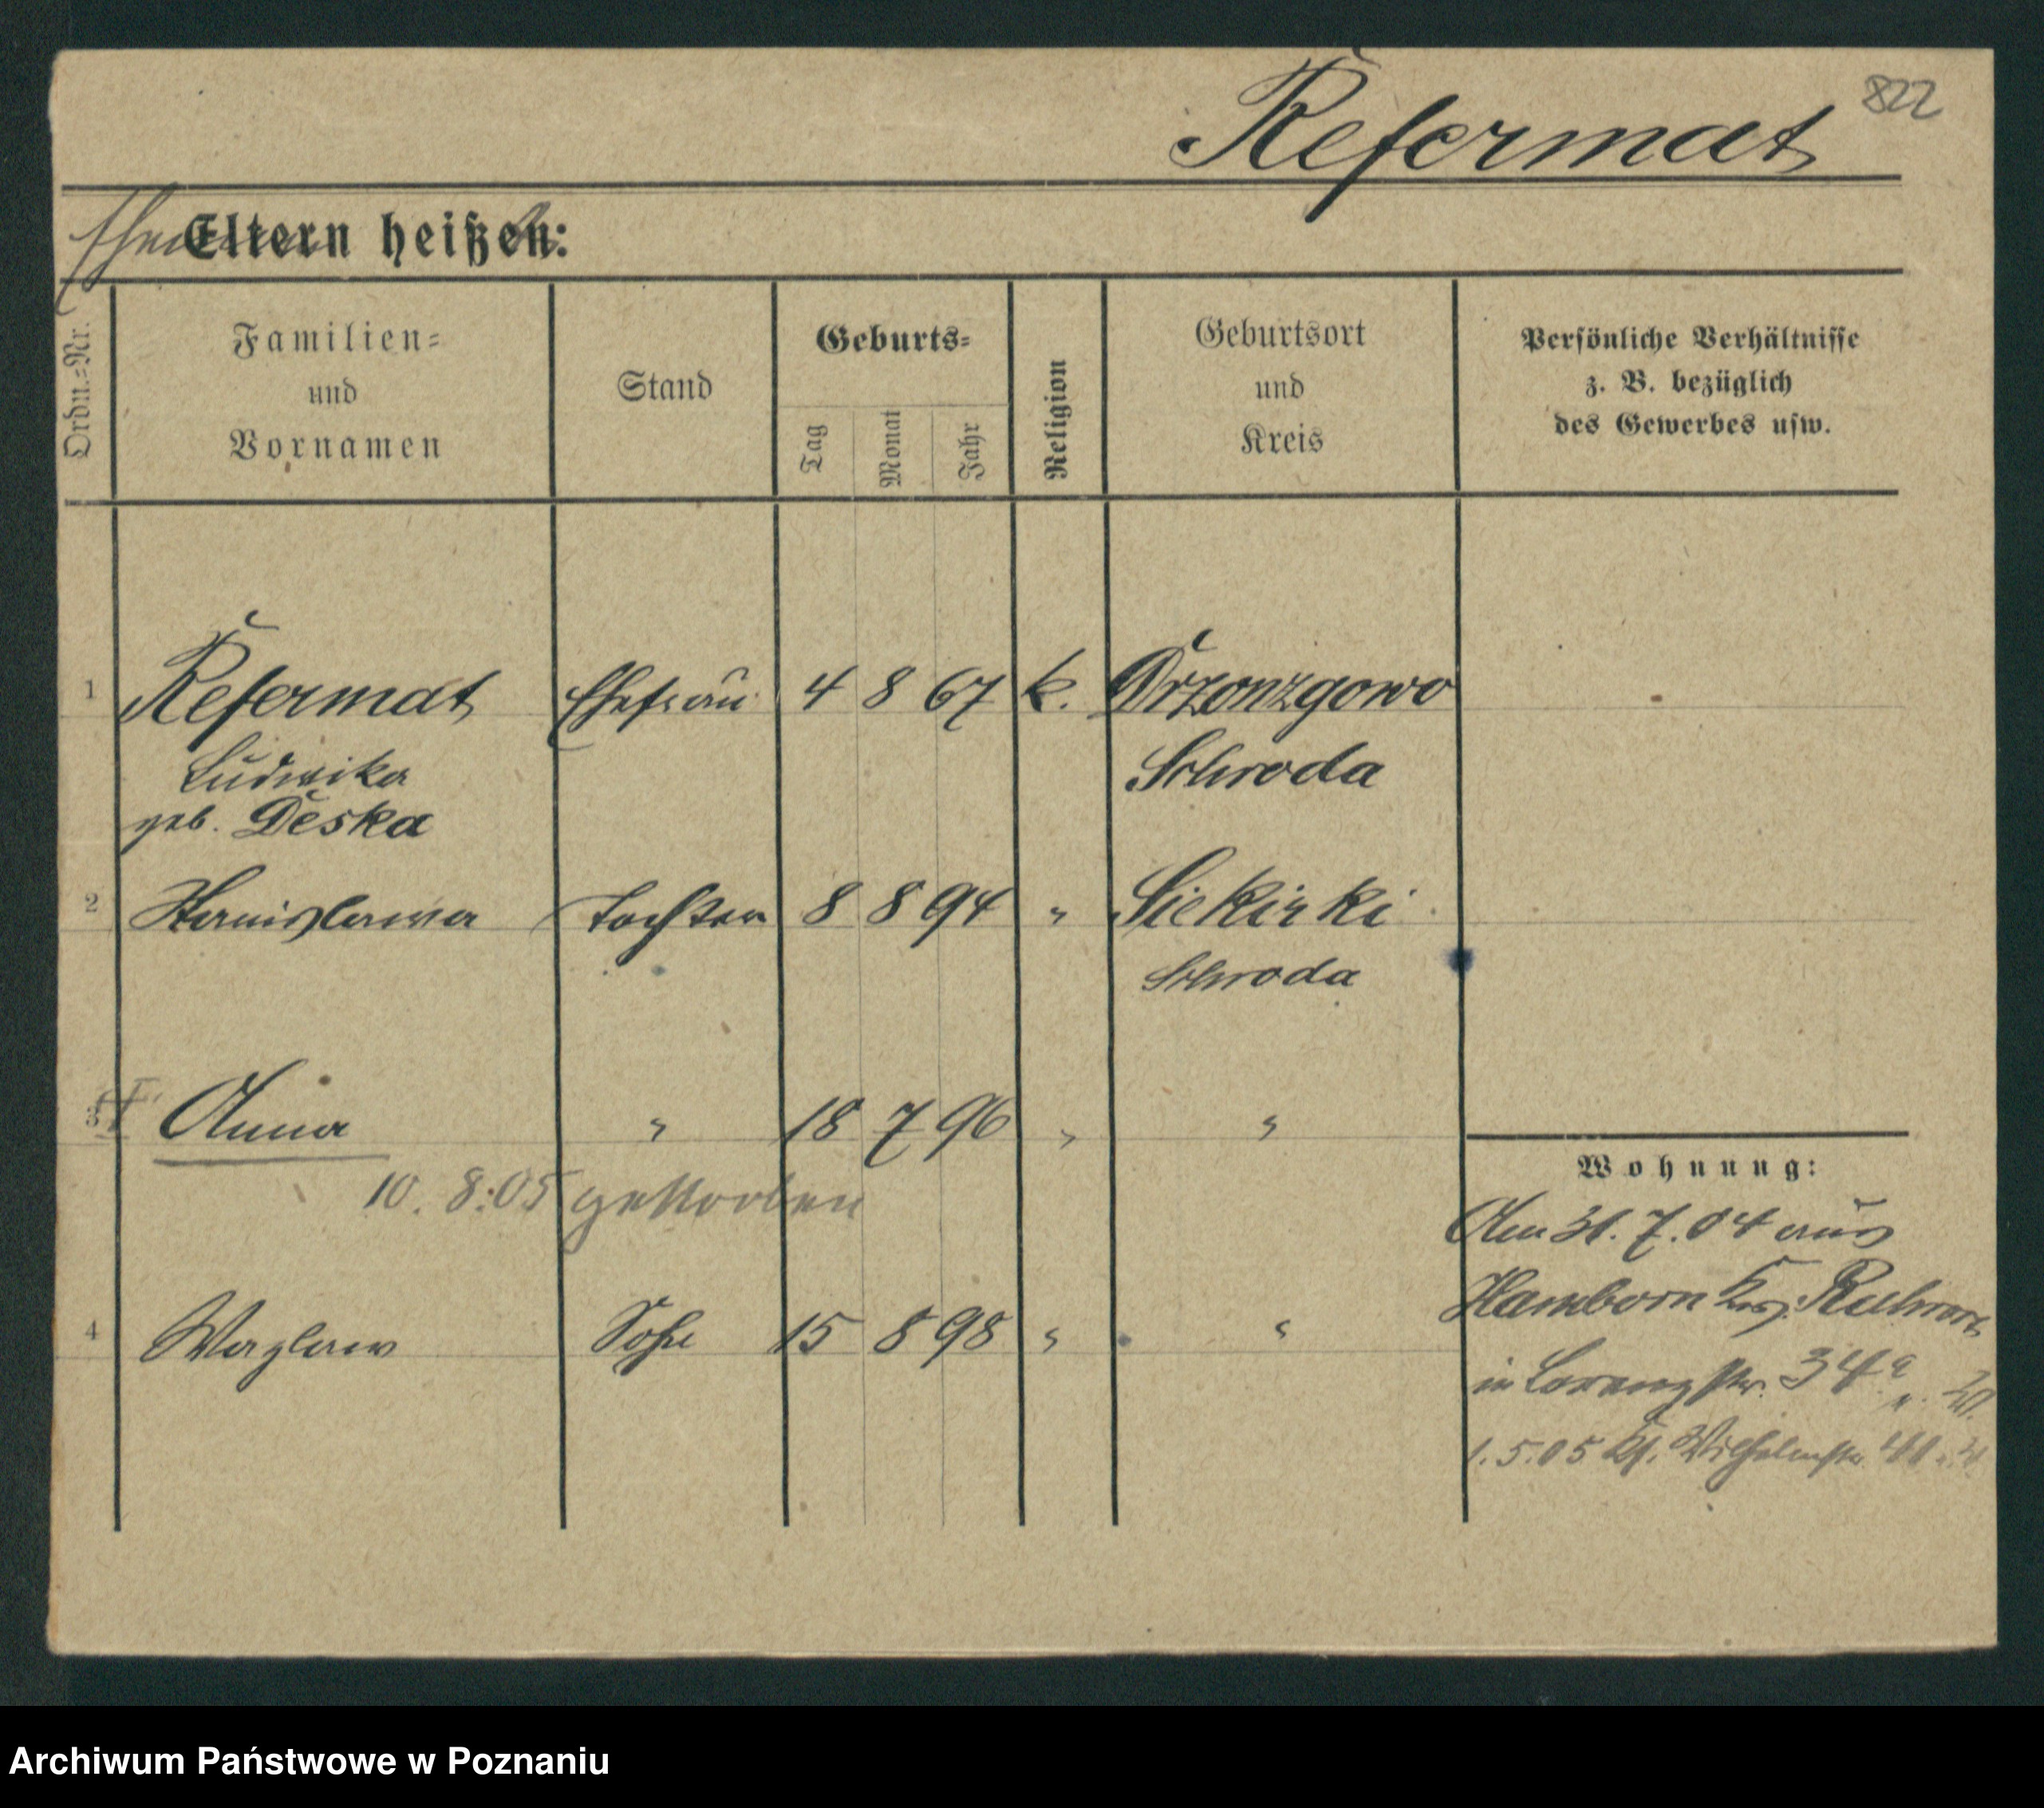 822
Refermat
Eltern heißen:
Ordn.=Nr.
Familien=
und
Vornamen
Stand
Geburts=
Tag
Monat
Jahr
Religion
Geburtsort
und
Kreis
Persönliche Verhältnisse
z. B. bezüglich
des Gewerbes usw.
1 Refermat Ehefrau 4 8 67 k. Drzonzgowo
Ludwika Schroda
geb. Deska
2 Stanislawa Tochter 8 8 94 " Siekirki
Schroda
3 Anna " 18 7 96 " "
10. 8. 05 gestorben
4 Wazlaw Sohn 15 8 98 " "
Wohnung:
Am 31. 7. 04 aus
Hamborn Krs. Ruhrort
in Lorenzstr. 34a
1. 5. 05 Wilhelmstr.
Archiwum Państwowe w Poznaniu